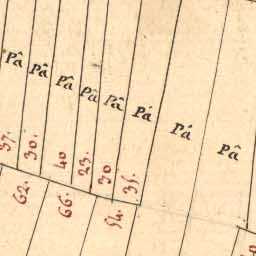 Pâ Pâ Pâ Pâ Pâ Pá Pá Pâ
37. 30. 40 23. 30 35.
62. 66. 54.